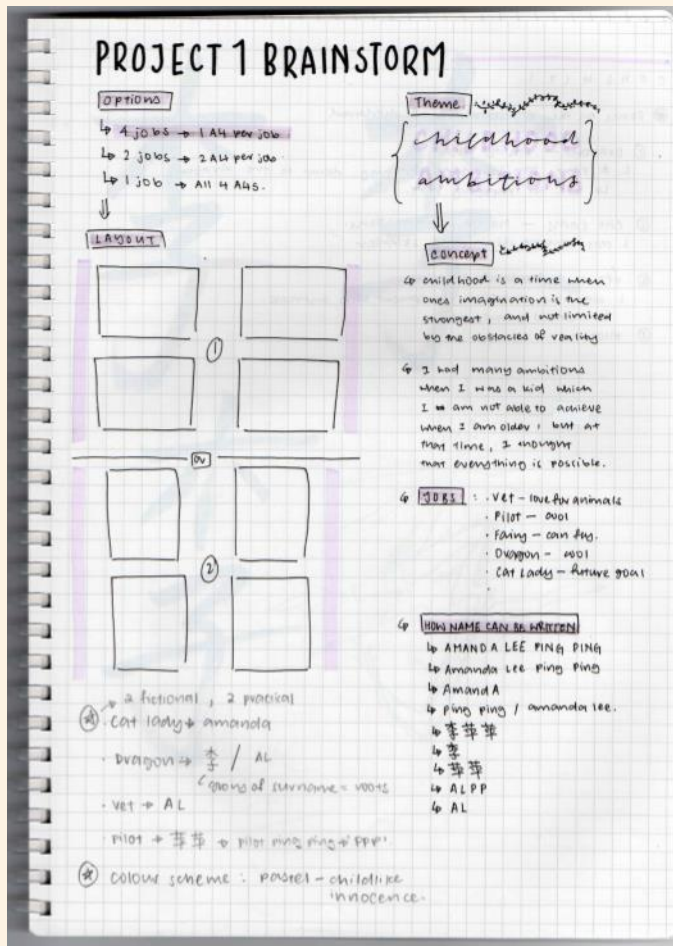 PROJECT 1 BRAINSTORM
Options
↳ 4 jobs → 1 A4 per job
↳ 2 jobs → 2 A4 per job
↳ 1 job → All 4 A4s.
LAYOUT
1
or
2
2 fictional, 2 practical
cat lady → amanda
· Dragon → 李 / AL
of surname = roots
· vet → AL
· pilot → 苹苹 → pilot ping ping → 'PPP'
colour scheme : pastel - childlike
innocence.
Theme
childhood
ambitions
concept
↳ childhood is a time when
ones imagination is the
strongest, and not limited
by the obstacles of reality
↳ I had many ambitions
when I was a kid which
I am not able to achieve
when I am older, but at
that time, I thought
that everything is possible.
↳ JOBS : · Vet - love for animals
· Pilot - cool
· Fairy - can fly.
· Dragon - cool
· Cat Lady - future goal
↳ HOW NAME CAN BE WRITTEN
↳ AMANDA LEE PING PING
↳ Amanda Lee Ping Ping
↳ AmandA
↳ Ping ping / amanda lee.
↳ 李苹苹
↳ 李
↳ 苹苹
↳ ALPP
↳ AL